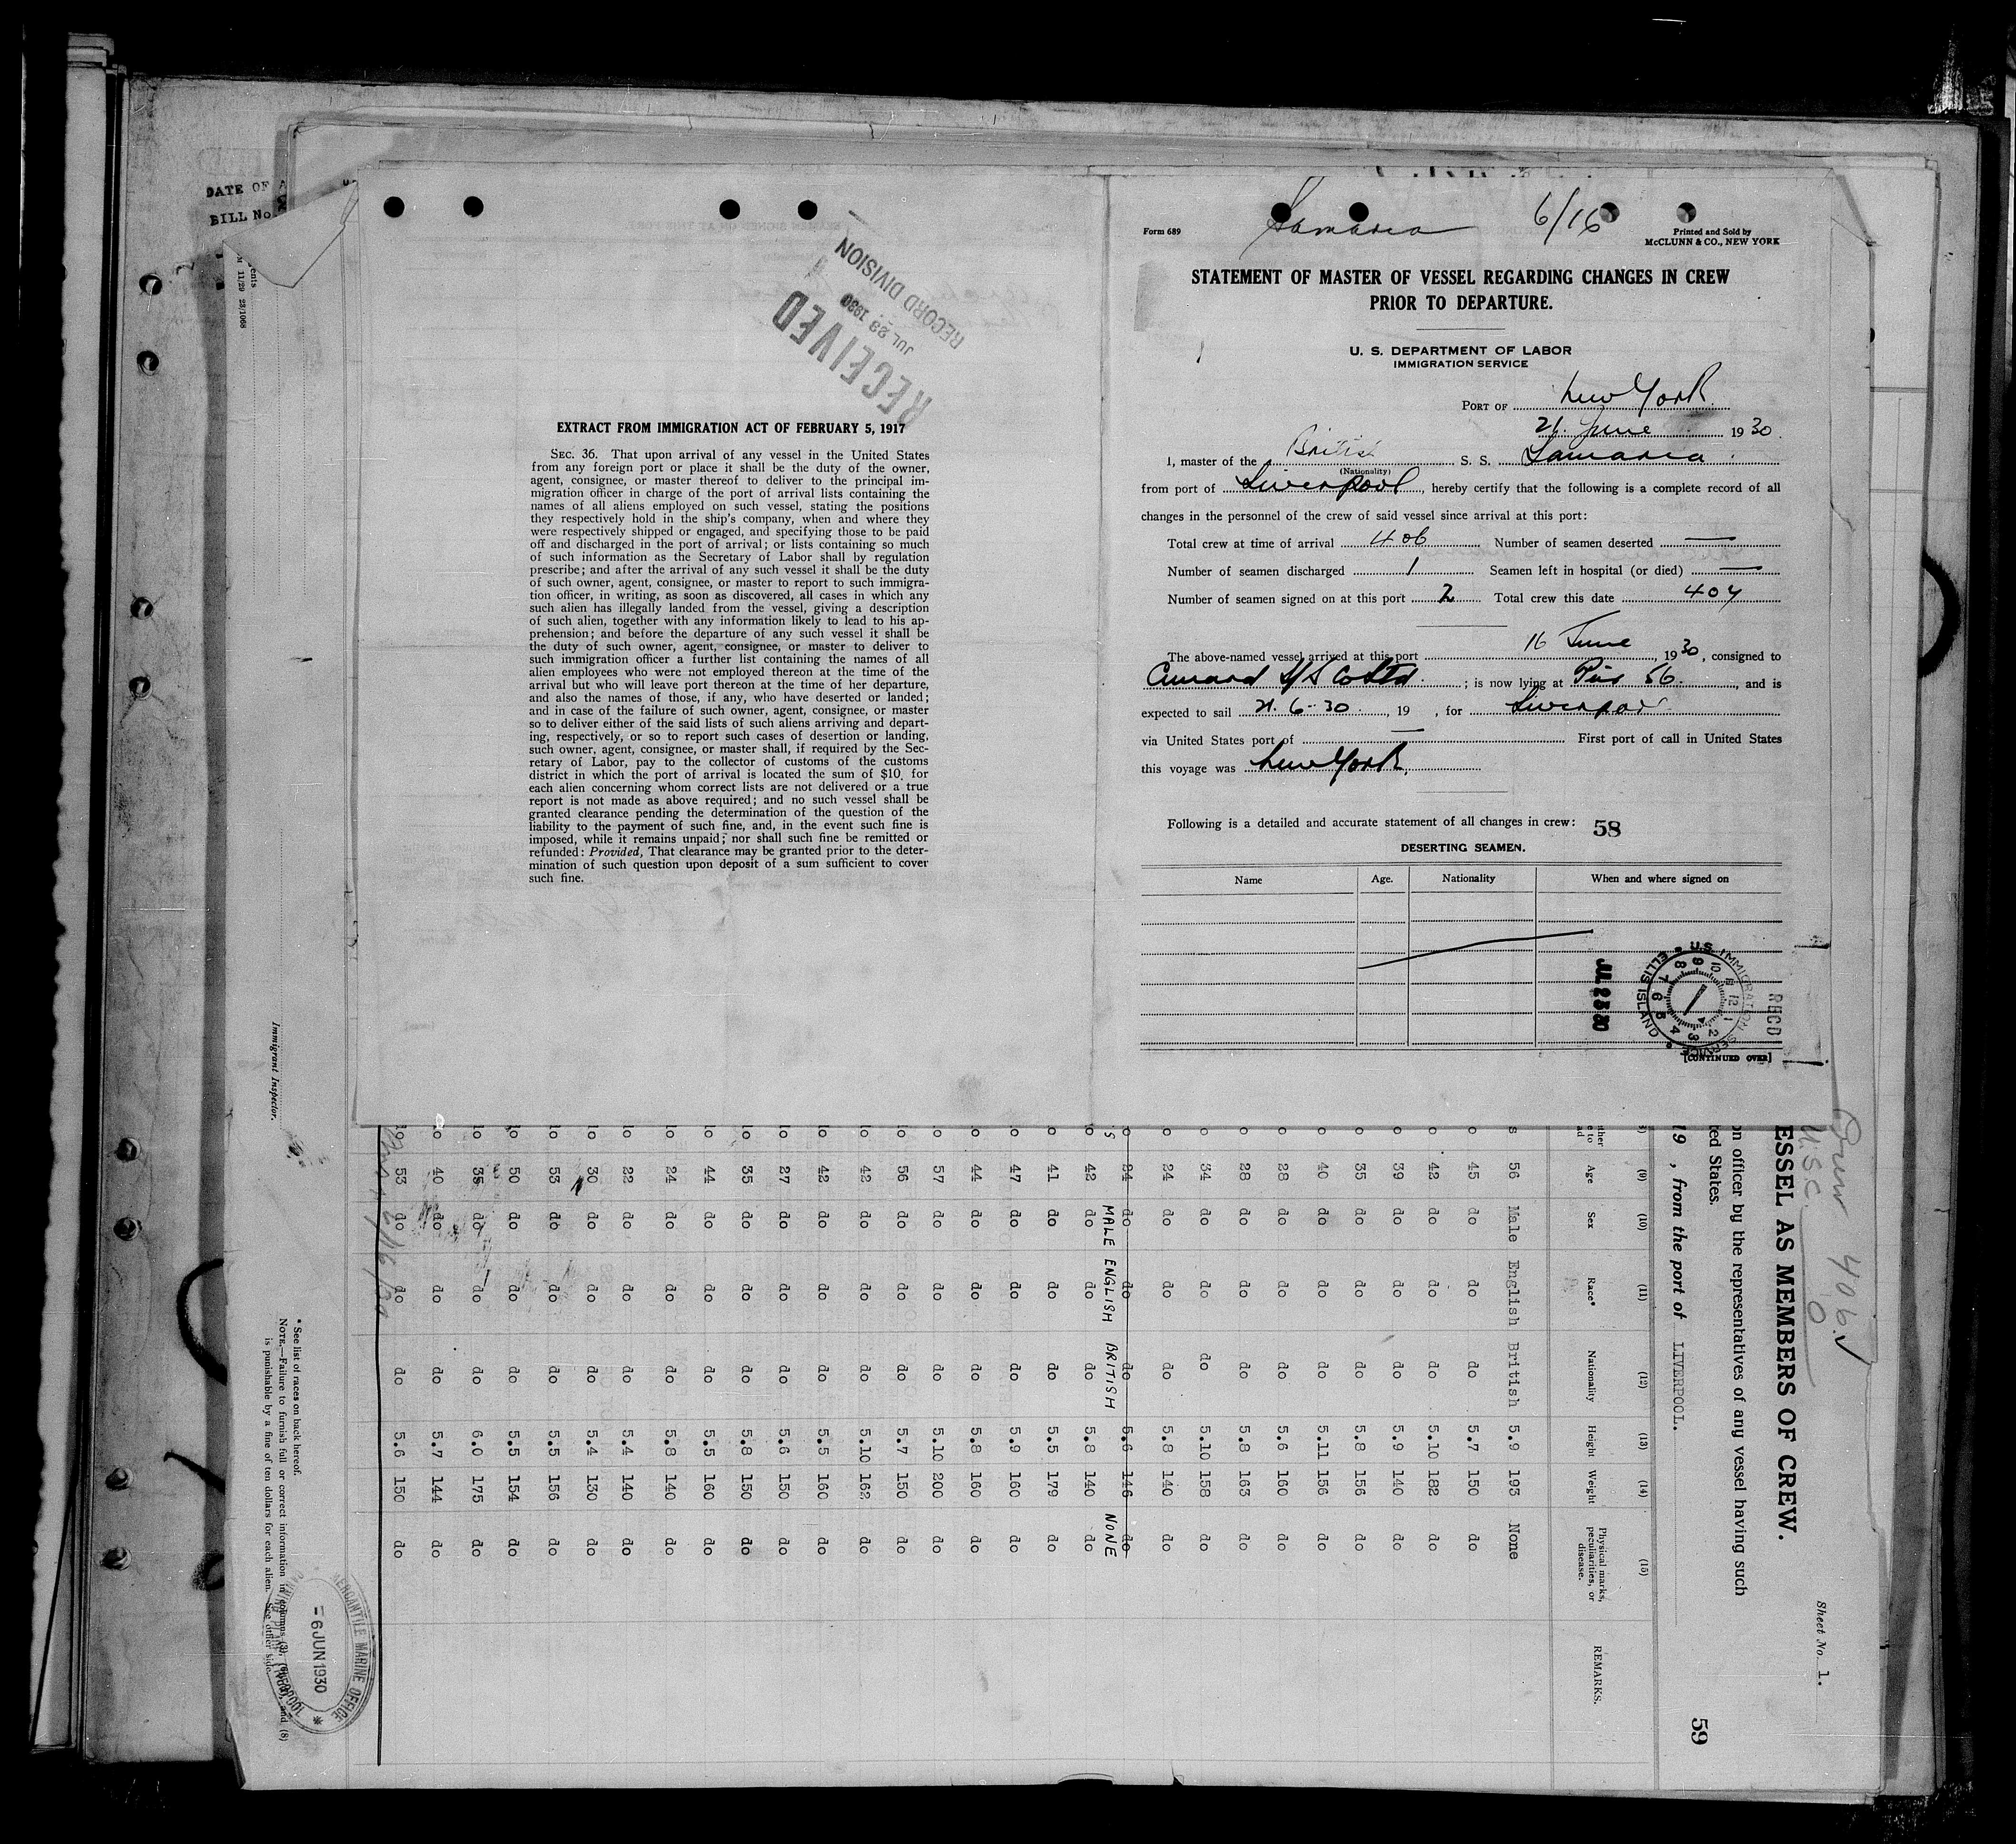 DATE OF A
BILL No.
11/29 23/1068
Immigrant Inspector.
RECEIVED
JUL 23 1930
RECORD DIVISION
EXTRACT FROM IMMIGRATION ACT OF FEBRUARY 5, 1917
SEC. 36. That upon arrival of any vessel in the United States
from any foreign port or place it shall be the duty of the owner,
agent, consignee, or master thereof to deliver to the principal im-
migration officer in charge of the port of arrival lists containing the
names of all aliens employed on such vessel, stating the positions
they respectively hold in the ship's company, when and where they
were respectively shipped or engaged, and specifying those to be paid
off and discharged in the port of arrival; or lists containing so much
of such information as the Secretary of Labor shall by regulation
prescribe; and after the arrival of any such vessel it shall be the duty
of such owner, agent, consignee, or master to report to such immigra-
tion officer, in writing, as soon as discovered, all cases in which any
such alien has illegally landed from the vessel, giving a description
of such alien, together with any information likely to lead to his ap-
prehension; and before the departure of any such vessel it shall be
the duty of such owner, agent, consignee, or master to deliver to
such immigration officer a further list containing the names of all
alien employees who were not employed thereon at the time of the
arrival but who will leave port thereon at the time of her departure,
and also the names of those, if any, who have deserted or landed;
and in case of the failure of such owner, agent, consignee, or master
so to deliver either of the said lists of such aliens arriving and depart-
ing, respectively, or so to report such cases of desertion or landing,
such owner, agent, consignee, or master shall, if required by the Sec-
retary of Labor, pay to the collector of customs of the customs
district in which the port of arrival is located the sum of $10 for
each alien concerning whom correct lists are not delivered or a true
report is not made as above required; and no such vessel shall be
granted clearance pending the determination of the question of the
liability to the payment of such fine, and, in the event such fine is
imposed, while it remains unpaid; nor shall such fine be remitted or
refunded: Provided, That clearance may be granted prior to the deter-
mination of such question upon deposit of a sum sufficient to cover
such fine.
Form 689
Samaria 6/16
Printed and Sold by
McCLUNN & CO., NEW YORK
STATEMENT OF MASTER OF VESSEL REGARDING CHANGES IN CREW
PRIOR TO DEPARTURE.
U. S. DEPARTMENT OF LABOR
IMMIGRATION SERVICE
PORT OF New York
21 June 1930
I, master of the British S. S. Samaria
(Nationality)
from port of Liverpool, hereby certify that the following is a complete record of all
changes in the personnel of the crew of said vessel since arrival at this port:
Total crew at time of arrival 406 Number of seamen deserted —
Number of seamen discharged 1 Seamen left in hospital (or died) —
Number of seamen signed on at this port 2 Total crew this date 407
The above-named vessel arrived at this port 16 June, 1930, consigned to
Cunard S/S Co Ltd; is now lying at Pier 56, and is
expected to sail 21.6-30, 19 , for Liverpool
via United States port of — First port of call in United States
this voyage was New York,
Following is a detailed and accurate statement of all changes in crew: 58
DESERTING SEAMEN.
Name Age. Nationality When and where signed on
JUL 23 30
U.S. IMMIGRATION SERVICE
ELLIS ISLAND
RECD
[CONTINUED OVER]
Sheet No. 1.
406 ✓
U.S.C. 0
ESSEL AS MEMBERS OF CREW.
59
on officer by the representatives of any vessel having such
ted States.
19 , from the port of LIVERPOOL.
(9) (10) (11) (12) (13) (14) (15)
Age Sex Race* Nationality Height Weight Physical marks, peculiarities, or disease. REMARKS.
56 Male English British 5.9 193 None
45 do do do 5.7 150 do
42 do do do 5.10 182 do
39 do do do 5.9 140 do
35 do do do 5.8 156 do
40 do do do 5.11 156 do
28 do do do 5.6 160 do
28 do do do 5.8 163 do
34 do do do 5.10 158 do
24 do do do 5.8 140 do
24 do do do 5.6 146 do
MALE ENGLISH BRITISH NONE
42 do do do 5.8 140 do
41 do do do 5.5 179 do
47 do do do 5.9 160 do
44 do do do 5.8 160 do
57 do do do 5.10 200 do
56 do do do 5.7 150 do
42 do do do 5.10 162 do
42 do do do 5.5 160 do
27 do do do 5.6 150 do
35 do do do 5.8 150 do
44 do do do 5.5 160 do
24 do do do 5.8 140 do
22 do do do 5.4 140 do
30 do do do 5.4 130 do
53 do do do 5.5 156 do
50 do do do 5.5 154 do
35 do do do 6.0 175 do
40 do do do 5.7 144 do
53 do do do 5.6 150 do
6/16/30
* See list of races on back hereof.
NOTE.—Failure to furnish full or correct information in columns (3), and (8)
is punishable by a fine of ten dollars for each alien. See other side.
MERCANTILE MARINE OFFICE
6 JUN 1930
LIVERPOOL